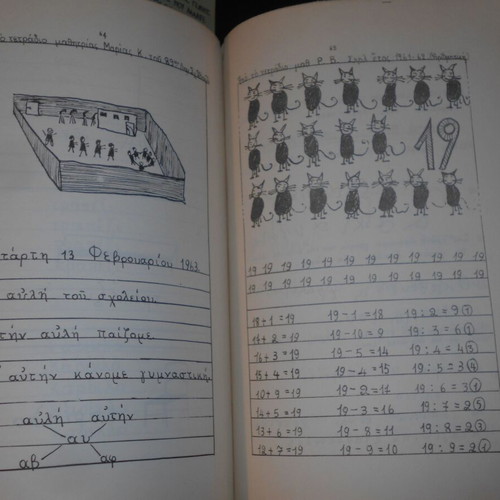 τετράδιο μαθητρίας Μαρίας Κ. τοῦ
τάρτη 13 Φεβρουαρίου 1963.
αὐλή τοῦ σχολείου
τήν αὐλή παίζομε
αὐτήν κάνομε γυμναστική.
αὐλή αὐτήν
αυ
αβ αφ
65
τετράδιο μαθ. Ρ. Β. Σχολ. ἔτος
19
19 19 19 19 19 19 19 19 19 19 19 19
19 19 19 19 19 19 19 19 19 19 19 19
18+1=19 19-1=18 19:2=9①
17+2=19 19-10=9 19:3=6①
16+3=19 19-5=14 19:4=4③
15+4=19 19-4=15 19:5=3④
10+9=19 19-2=17 19:6=3①
14+5=19 19-3=16 19:7=2⑤
13+6=19 19-8=11 19:8=2③
12+7=19 19-9=10 19:9=2①